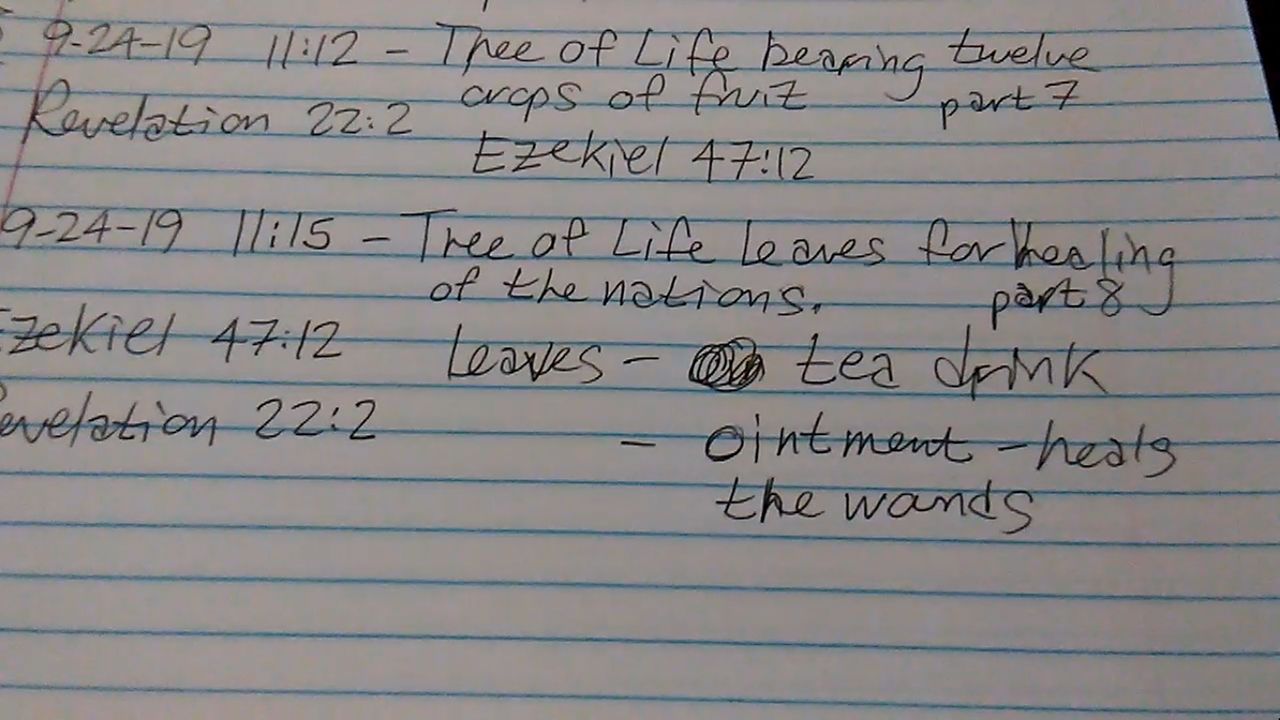 9-24-19 11:12 - Tree of Life bearing twelve
crops of fruit part 7
Revelation 22:2
Ezekiel 47:12
9-24-19 11:15 - Tree of Life leaves for healing
of the nations. part 8
Ezekiel 47:12 Leaves - tea drink
evelation 22:2
- ointment - heals
the wands